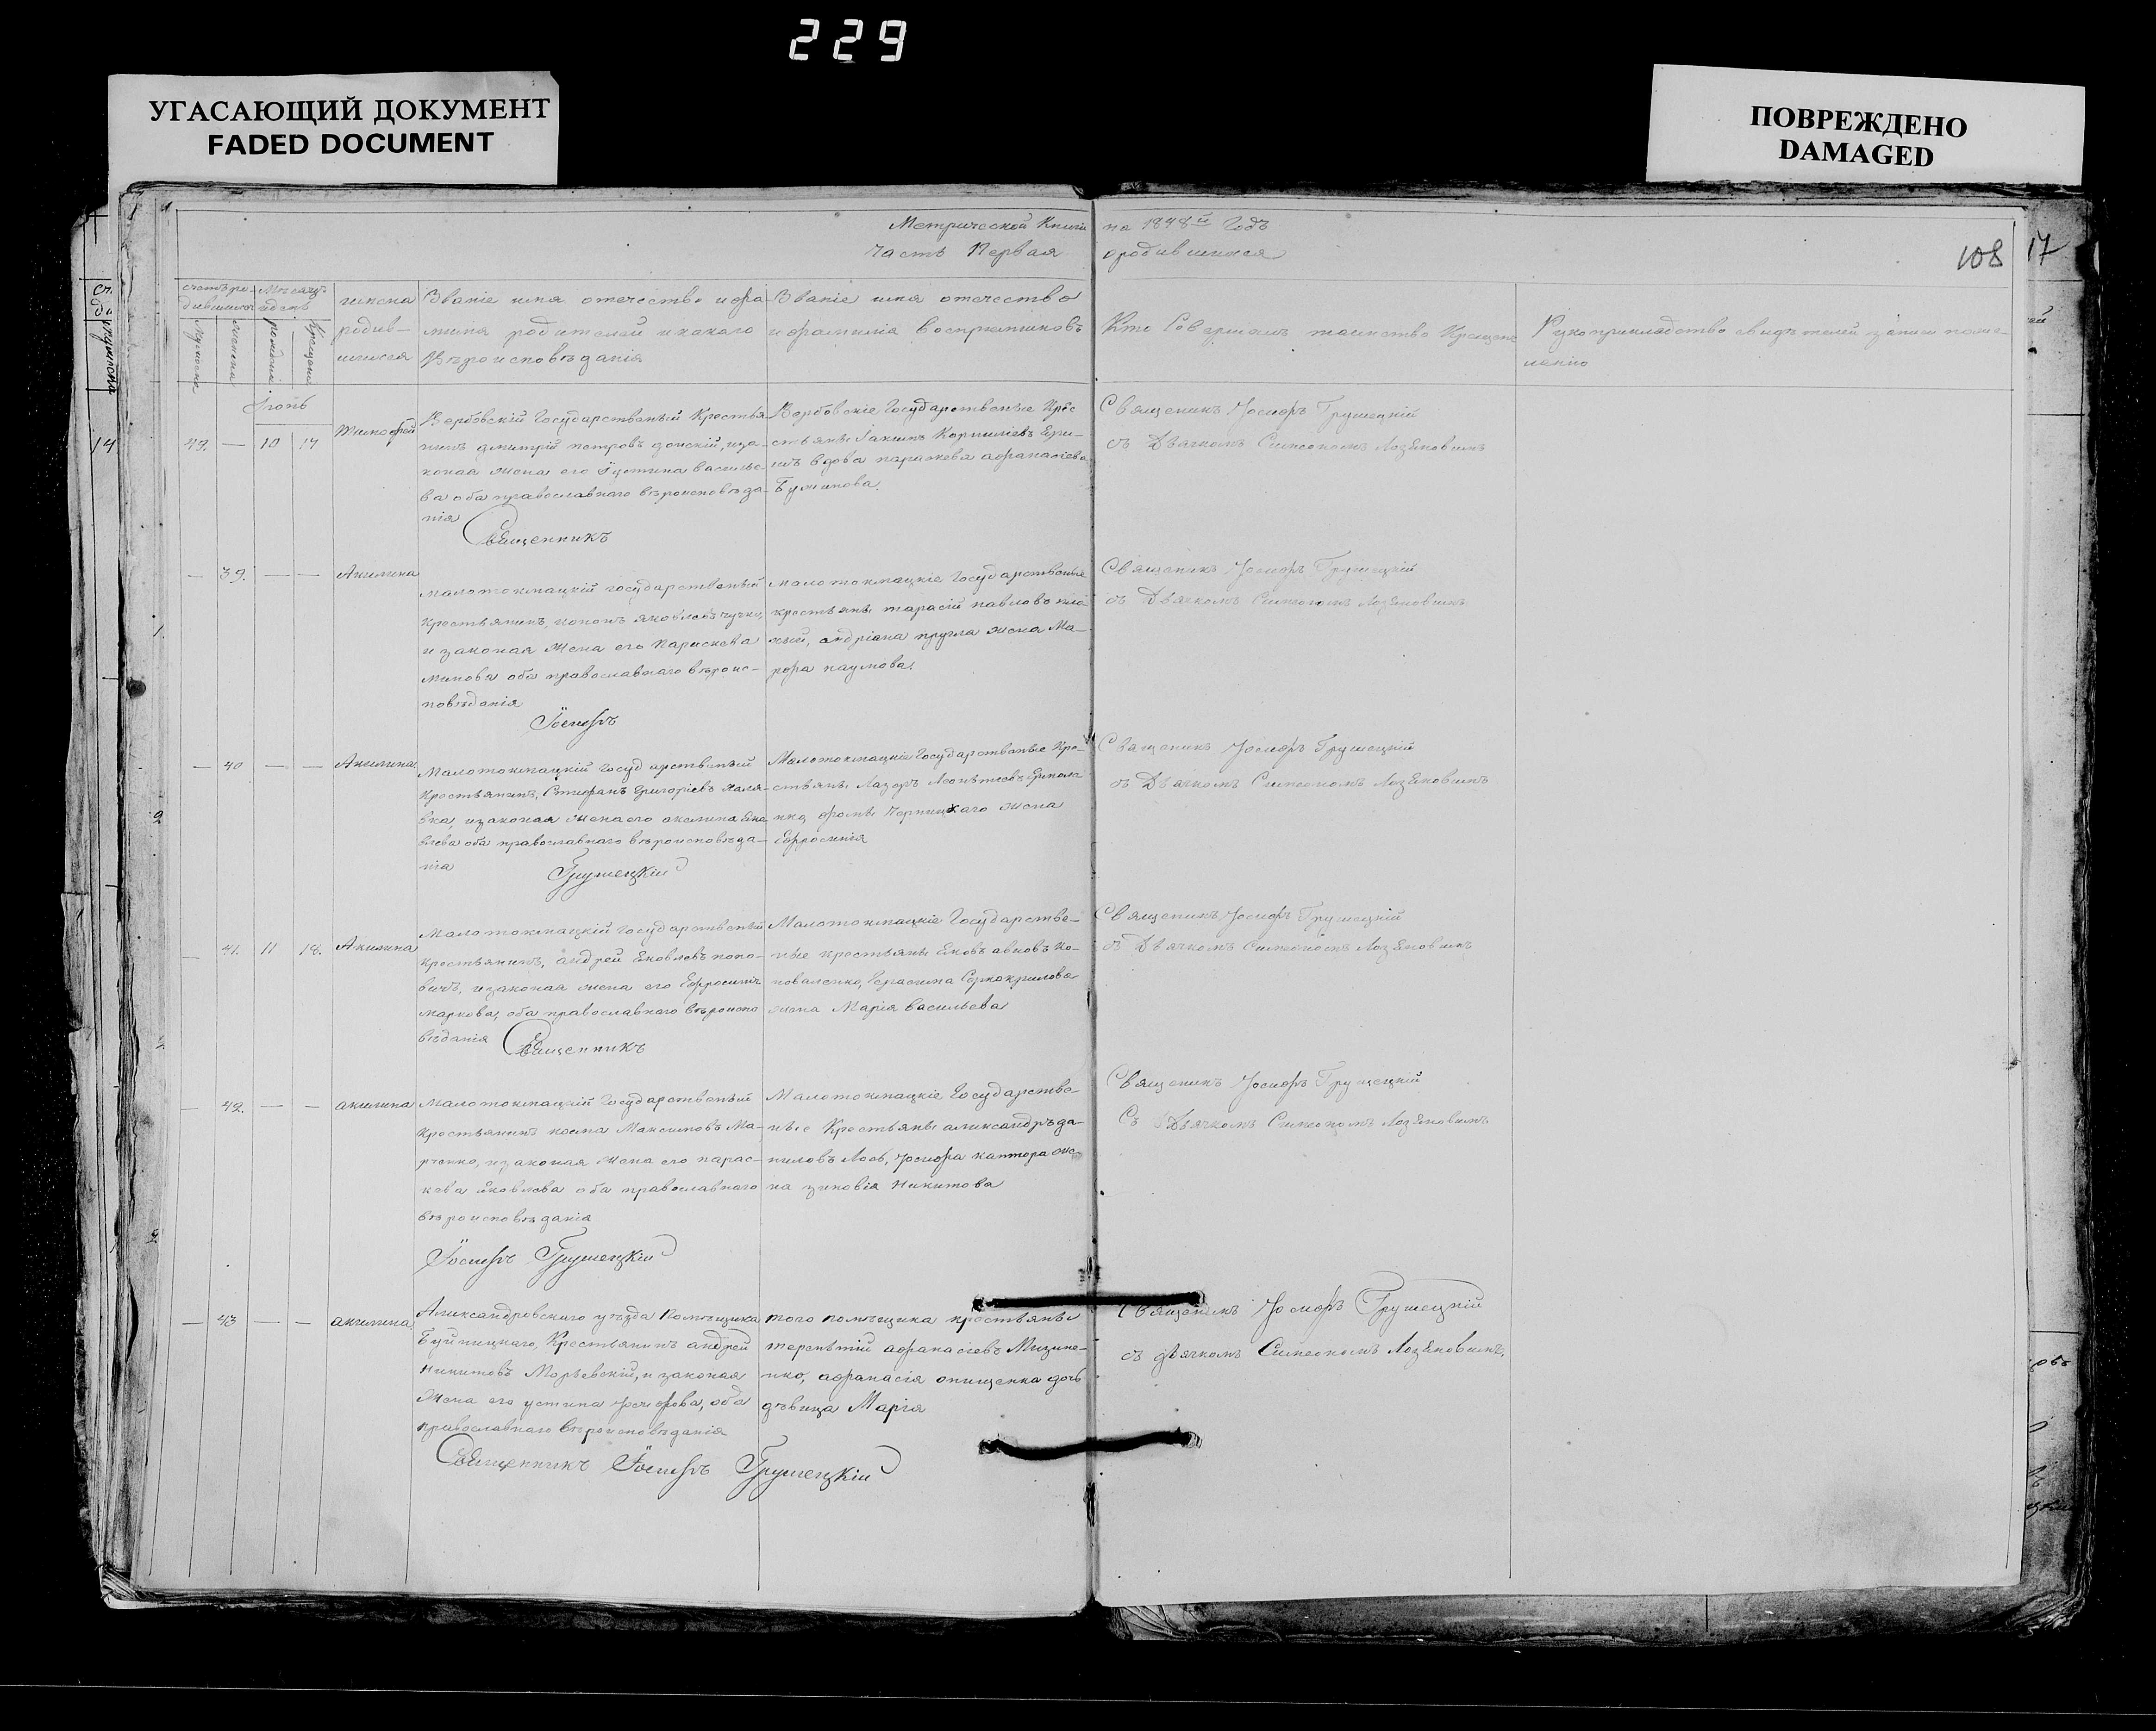 229
УГАСАЮЩИЙ ДОКУМЕНТ
FADED DOCUMENT
ПОВРЕЖДЕНО
DAMAGED
Метрической Книги на 1848й Годъ
Часть Первая о родившихся
108
17
счетъ ро-
дившихся
Мѣсяцъ
и день
мужеска
женска
рожденія
крещенія
имена
родив-
шихся
Званіе имя отечество и фа-
милія родителей и какого
Вѣроисповѣданія
Званіе имя отечество
и фамилія воспріемниковъ
Кто Совершалъ таинство Крещенія
Рукоприкладство свидѣтелей записи по же-
ланію
14
Іюнь
42. — 10 17
Тимофей
Вербовскій Государственый Крестья-
нинъ дмитрій петровъ донскій, и за-
коная жена его Іустина василье-
ва оба православнаго вѣроисповѣда-
нія
Вербовскіе Государственые Кре-
стьяне Іакимъ Корниліевъ
вдова параскева афанасіева
Священикъ Іосифъ Грушецкій
съ Дьячкомъ Симеономъ Лозяновимъ
Священникъ
— 39. — —
Акилина
малотокмацкій государственый
крестьянинъ, кононъ яковлевъ
и законая жена его Параскева
оба православнаго вѣроис-
повѣданія
малотокмацкіе Государственые
крестьяне тарасій павловъ
андріана жена Ма-
рфа наумова.
Священикъ Іосифъ Грушецкій
съ Дьячкомъ Симеономъ Лозяновимъ
Іосифъ
— 40 — —
Акилина
Малотокмацкій государственый
Крестьянинъ, Стефанъ Григоріевъ халя-
вка, и законая жена его акилина яко
влева оба православнаго вѣроисповѣда-
нія
Малотокмацкіе Государственые Кре-
стьяне Лазарь Леонтіевъ Ермоле
нко, фомы Черницкаго жена
Ефросинія
Священикъ Іосифъ Грушецкій
съ Дьячкомъ Симеономъ Лозяновимъ
Грушецкій
— 41. 11 18.
Акилина
Малотокмацкій государственый
крестьянинъ, андрей яковлевъ попо-
вичъ, и законая жена его Ефросинія
маркова, оба православнаго вѣроиспо
вѣданія
Малотокмацкіе Государстве-
ные крестьяне Яковъ Ко-
новаленко, Герасима Сероокрилова
жена Марія васильева
Священикъ Іосифъ Грушецкій
съ Дьячкомъ Симеономъ Лозяновимъ
Священникъ
— 42. — —
акилина
Малотокмацкій Государственый
Крестьянинъ косма Максимовъ Ма-
рченко, и законая жена его парас-
кева яковлева оба православнаго
вѣроисповѣданія
Малотокмацкіе Государстве-
ные Крестьяне александръ да-
ниловъ Лось, Іосифа кантора же-
на зиновія Никитова
Священикъ Іосифъ Грушецкій
Съ Дьячкомъ Симеономъ Лозяновимъ
Іосифъ Грушецкій
— 43 — —
акилина
Александровскаго уѣзда помѣщика
Буйницкаго, Крестьянинъ андрей
Никитовъ и законая
жена его устина Іосифова, оба
православнаго вѣроисповѣданія
того помѣщика крестьяне
терентій афанасіевъ Мизине-
нко, афанасія онищенка дочь
дѣвица Марія
Священикъ Іосифъ Грушецкій
съ дьячкомъ Симеономъ Лозяновимъ.
Священникъ Іосифъ Грушецкій